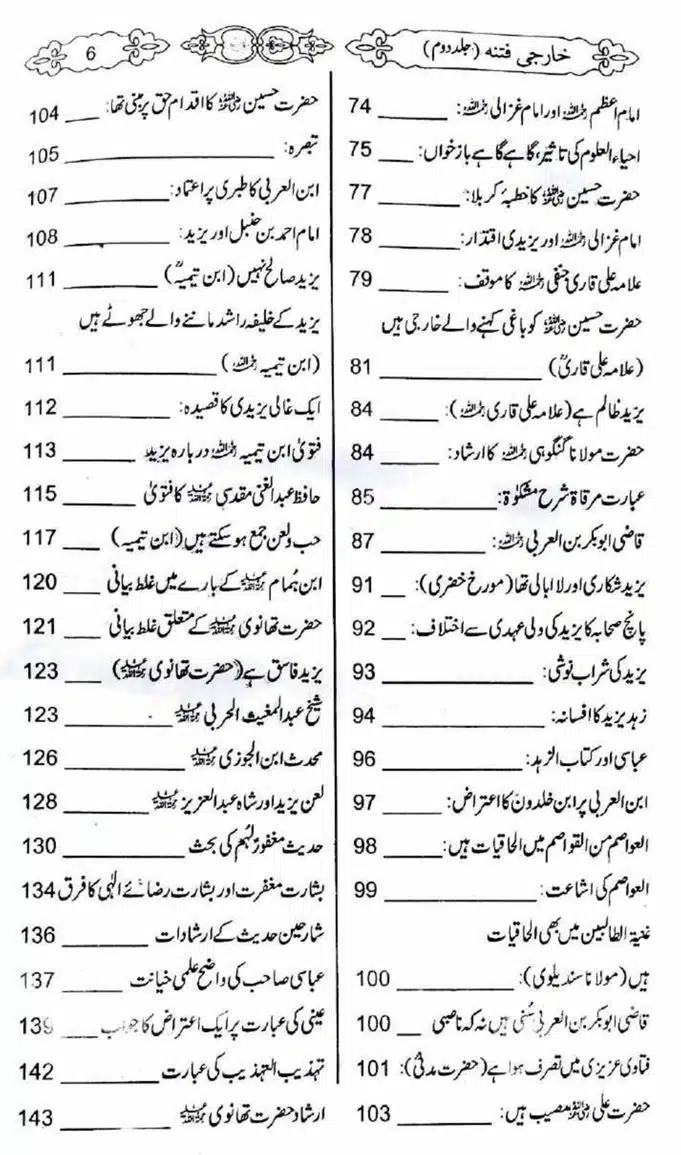 خارجی فتنہ (جلد دوم)
6
امام اعظم رحمہ اللہ اور امام غزالی رحمہ اللہ: 74
احیاء العلوم کی تاثیر، گاہے گاہے باز خواں: 75
حضرت حسین رضی اللہ عنہ کا خطبۂ کربلا: 77
امام غزالی رحمہ اللہ اور یزیدی اقتدار: 78
علامہ علی قاری حنفی رحمہ اللہ کا موقف: 79
حضرت حسین رضی اللہ عنہ کو باغی کہنے والے خارجی ہیں
(علامہ علی قاریؒ) 81
یزید ظالم ہے (علامہ علی قاری رحمہ اللہ): 84
حضرت مولانا گنگوہی رحمہ اللہ کا ارشاد: 84
عبارت مرقاۃ شرح مشکوٰۃ: 85
قاضی ابوبکر بن العربی رحمہ اللہ: 87
یزید شکاری اور لا ابالی تھا (مورخ خضری): 91
پانچ صحابہ کا یزید کی ولی عہدی سے اختلاف: 92
یزید کی شراب نوشی: 93
زہد یزید کا افسانہ: 94
عباسی اور کتاب الزہد: 96
ابن العربی پر ابن خلدون کا اعتراض: 97
العواصم من القواصم میں الحاقیات ہیں: 98
العواصم کی اشاعت: 99
غنیۃ الطالبین میں بھی الحاقیات
ہیں (مولانا سندیلوی): 100
قاضی ابوبکر بن العربی سُنی ہیں نہ کہ ناصبی 100
فتاوی عزیزی میں تصرف ہوا ہے (حضرت مدنیؒ): 101
حضرت علی رضی اللہ عنہ مصیب ہیں: 103
حضرت حسین رضی اللہ عنہ کا اقدام حق پر مبنی تھا: 104
تبصرہ: 105
ابن العربی کا طبری پر اعتماد: 107
امام احمد بن حنبل اور یزید: 108
یزید صالح نہیں (ابن تیمیہؒ) 111
یزید کے خلیفہ راشد ماننے والے جھوٹے ہیں
(ابن تیمیہ رحمہ اللہ) 111
ایک غالی یزیدی کا قصیدہ: 112
فتویٰ ابن تیمیہ رحمہ اللہ دربارہ یزید 113
حافظ عبدالغنی مقدسی رحمہ اللہ کا فتویٰ 115
حب ولعن جمع ہو سکتے ہیں (ابن تیمیہ) 117
ابن ہُمام رحمہ اللہ کے بارے میں غلط بیانی 120
حضرت تھانوی رحمہ اللہ کے متعلق غلط بیانی 121
یزید فاسق ہے (حضرت تھانوی رحمہ اللہ) 123
شیخ عبدالمغیث الحربی رحمہ اللہ 123
محدث ابن الجوزی رحمہ اللہ 126
لعن یزید اور شاہ عبدالعزیز رحمہ اللہ 128
حدیث مغفورٌ لہُم کی بحث 130
بشارت مغفرت اور بشارت رضائے الٰہی کا فرق 134
شارحین حدیث کے ارشادات 136
عباسی صاحب کی واضح علمی خیانت 137
عینی کی عبارت پر ایک اعتراض کا جواب 139
تہذیب التہذیب کی عبارت 142
ارشاد حضرت تھانوی رحمہ اللہ 143